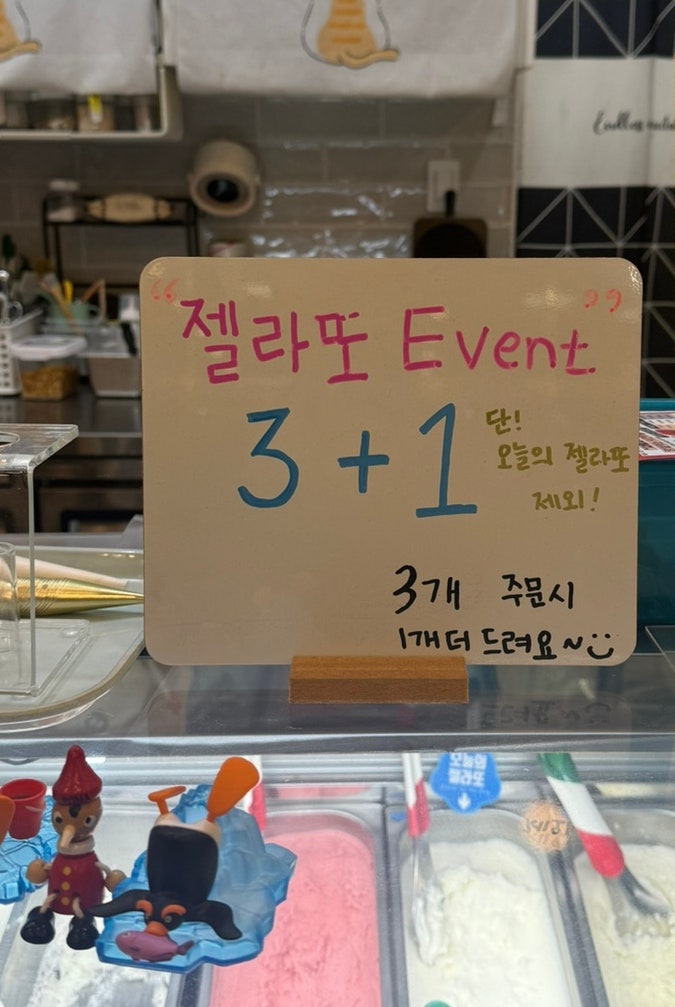 “젤라또 Event”
3+1
단!
오늘의 젤라또
제외!
3개 주문시
1개 더 드려요~
오늘의
젤라또